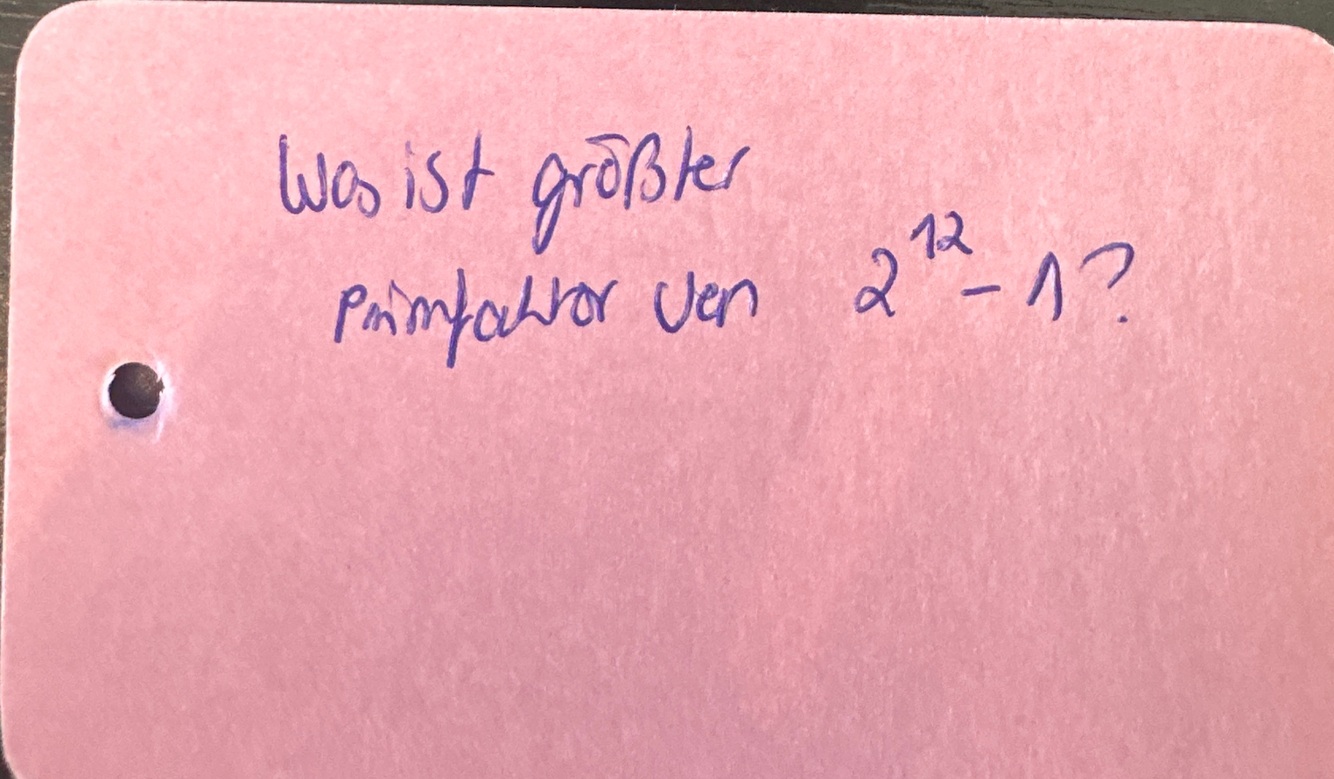 Was ist größter
Primfaktor von 2¹² - 1?